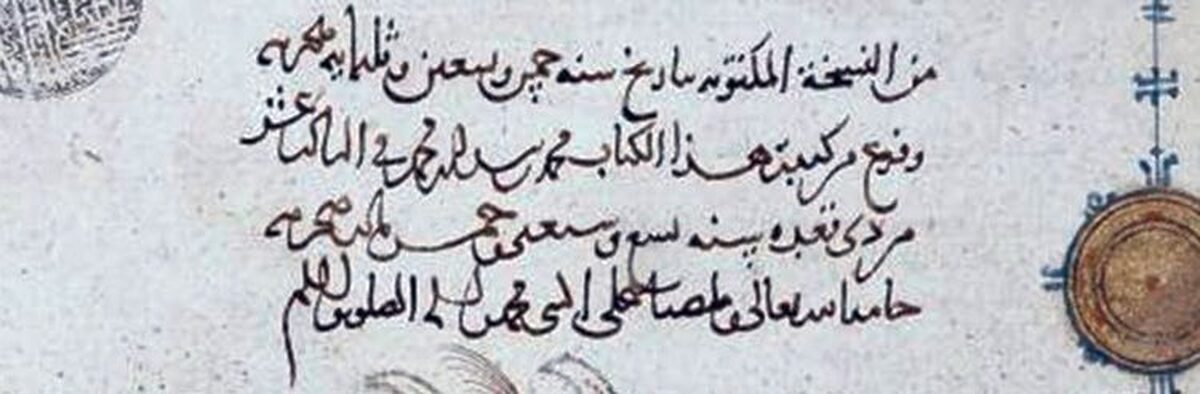 من النسخة المكتوبه بتاريخ سنه خمس وسبعين وثلثمايه هجريه
وفرغ من كتبة هذا الكتاب محمد بن محمد في الثالث عشر
من ذى قعده سنه تسع وسبعين وخمس مايه هجريه
حامدا لله تعالى ومصليا على النبي محمد